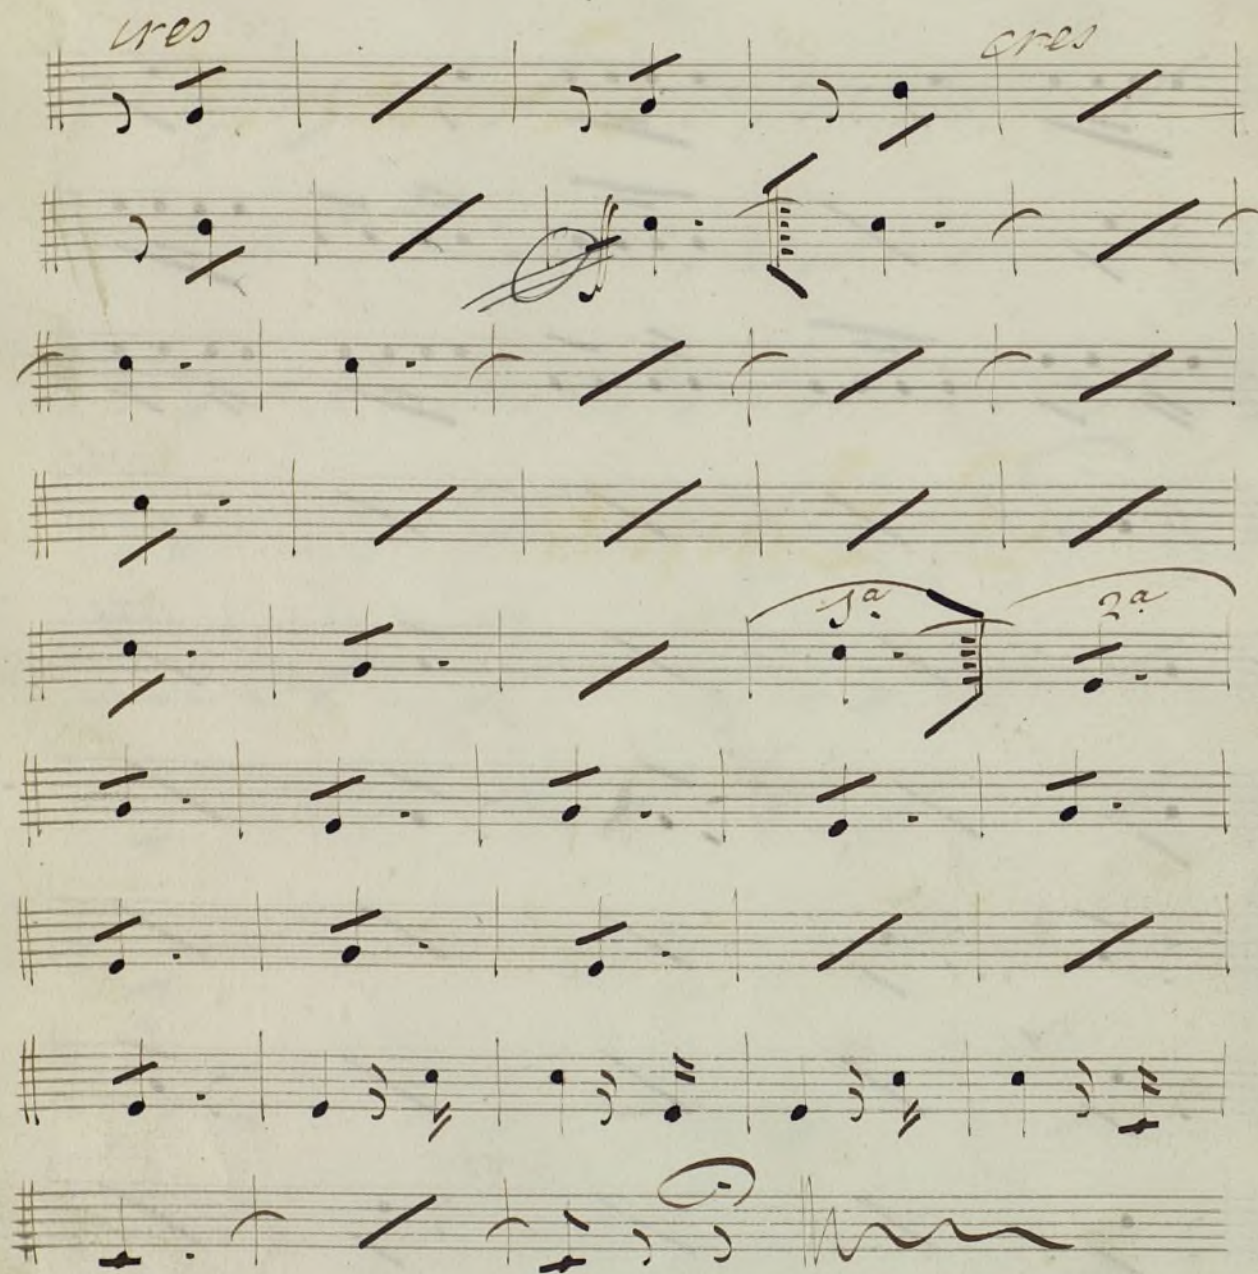 cres cres
1ª 2ª